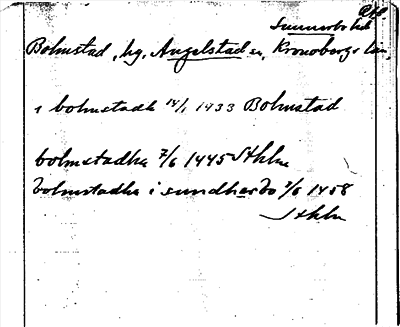 RA
Sunnerbo hd
Bolmstad, by, Angelstad sn, Kronobergs län
i bolmstadh 14/1 1433 Bolmstad
bolmstadha 7/6 1445 Sthlm
bolmstadha i sundharbo 7/6 1458
Sthlm